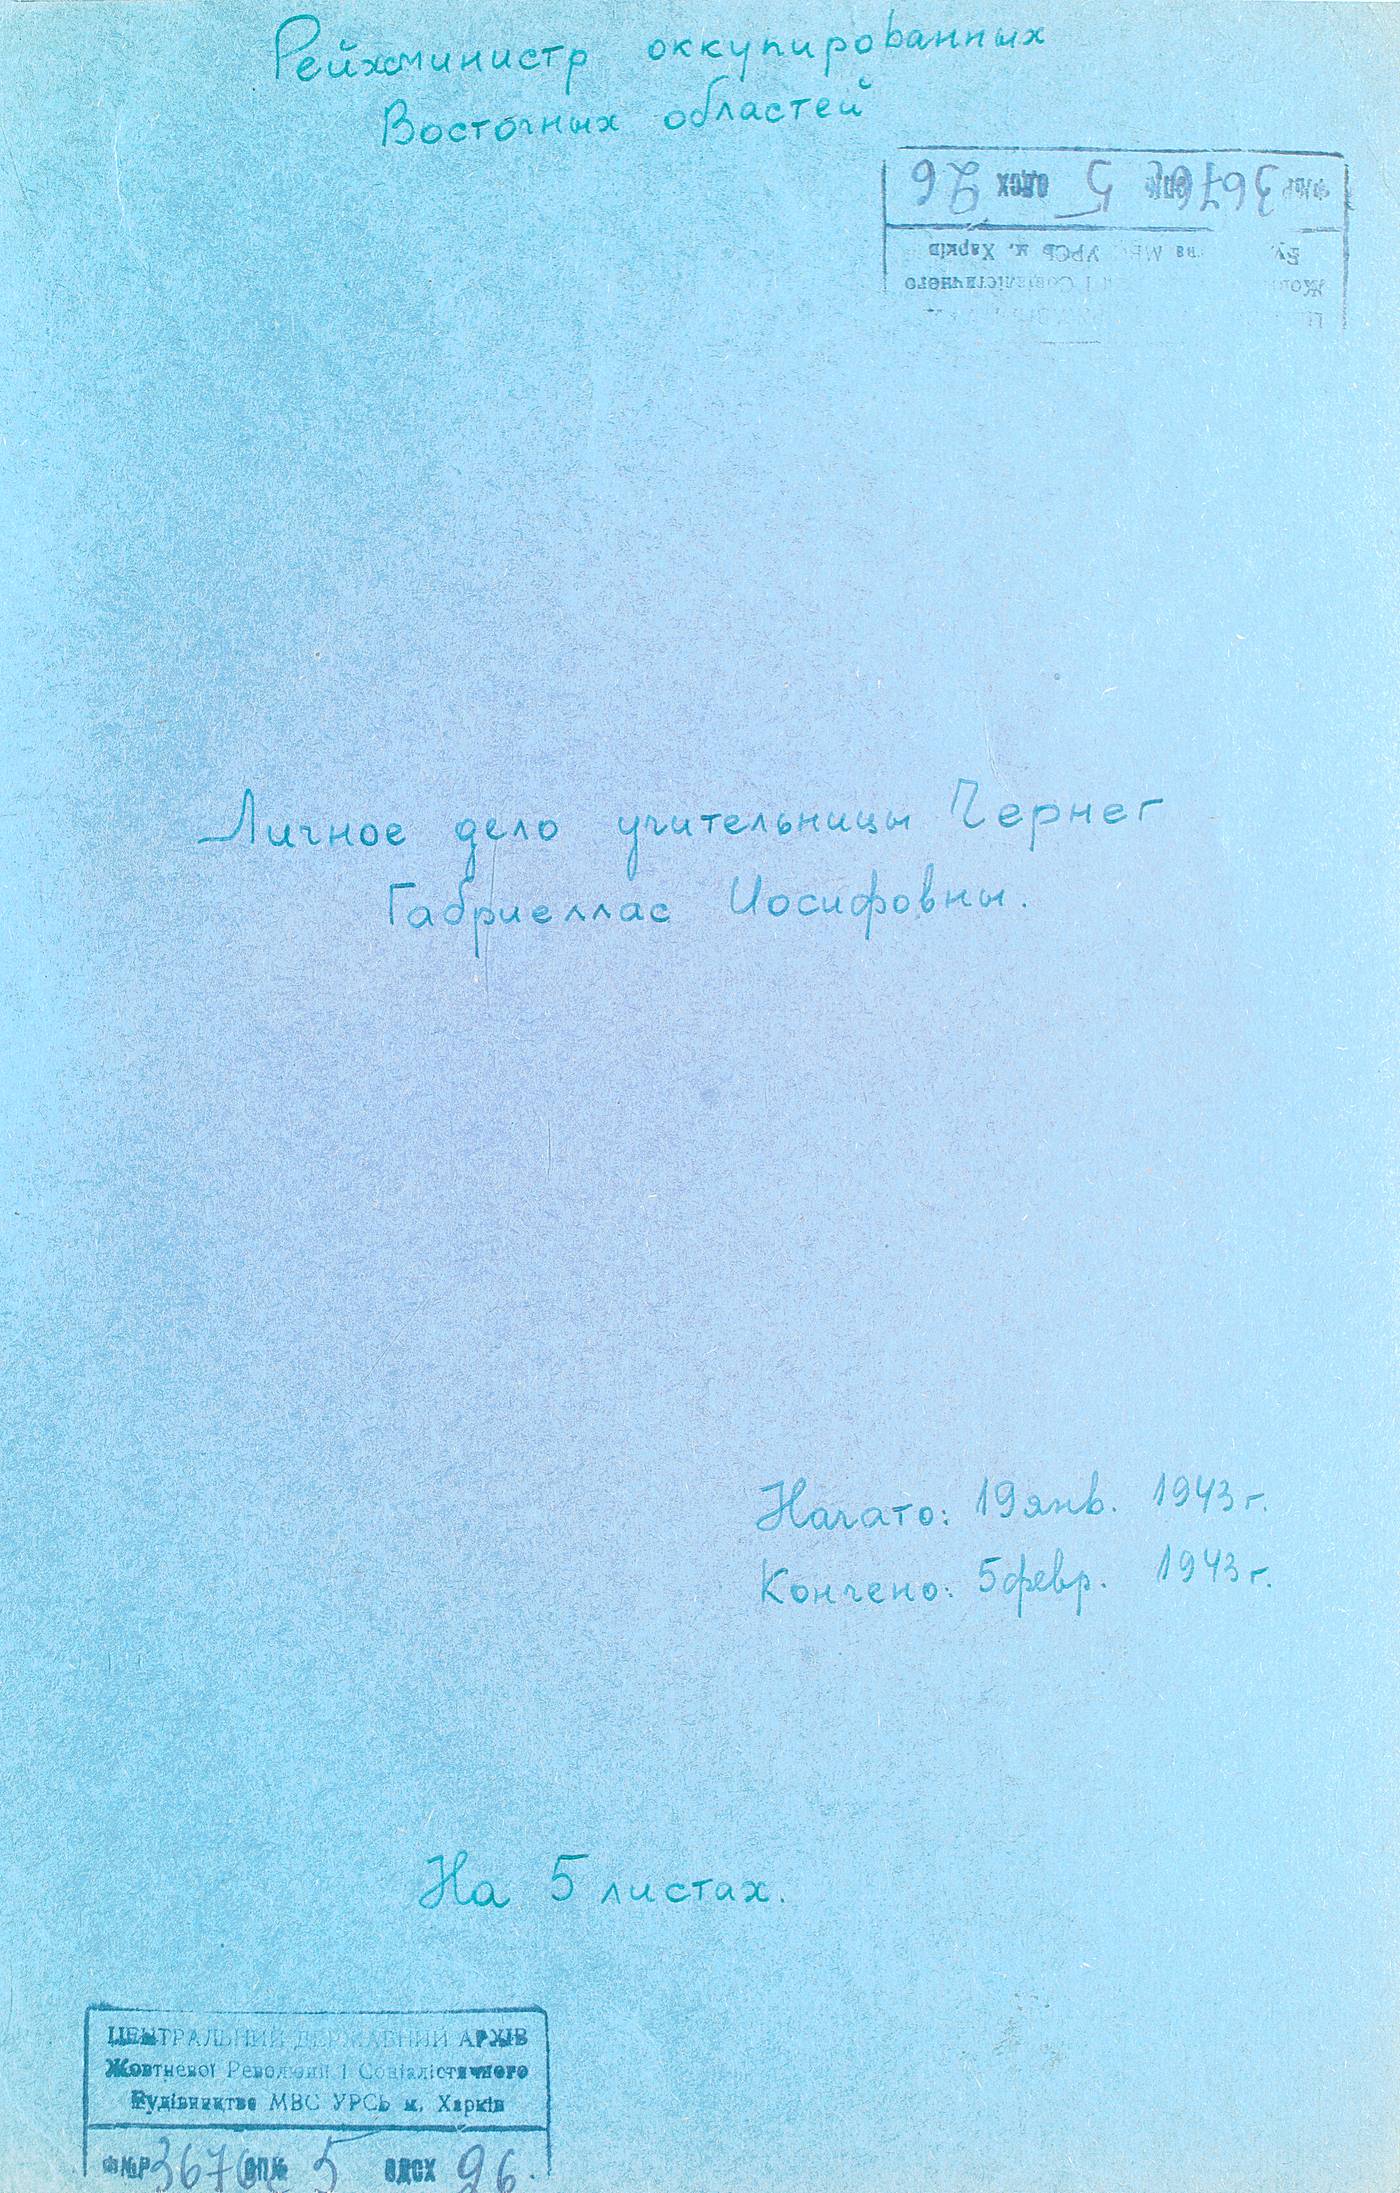 Рейхсминистр оккупированных
Восточных областей
ФМР 3676 ОПМ 5 ОДСХ 26
УРСЬ м. Харків
Соціалістичного
Личное дело учительницы Чернег
Габриеллас Иосифовны.
Начато: 19 янв. 1943 г.
Кончено: 5 февр. 1943 г.
На 5 листах.
ЦЕНТРАЛЬНИЙ ДЕРЖАВНИЙ АРХІВ
Жовтневої Революції і Соціалістичного
Будівництва МВС УРСЬ м. Харків
Ф№Р 3676 ОП№ 5 ОДСХ 26.